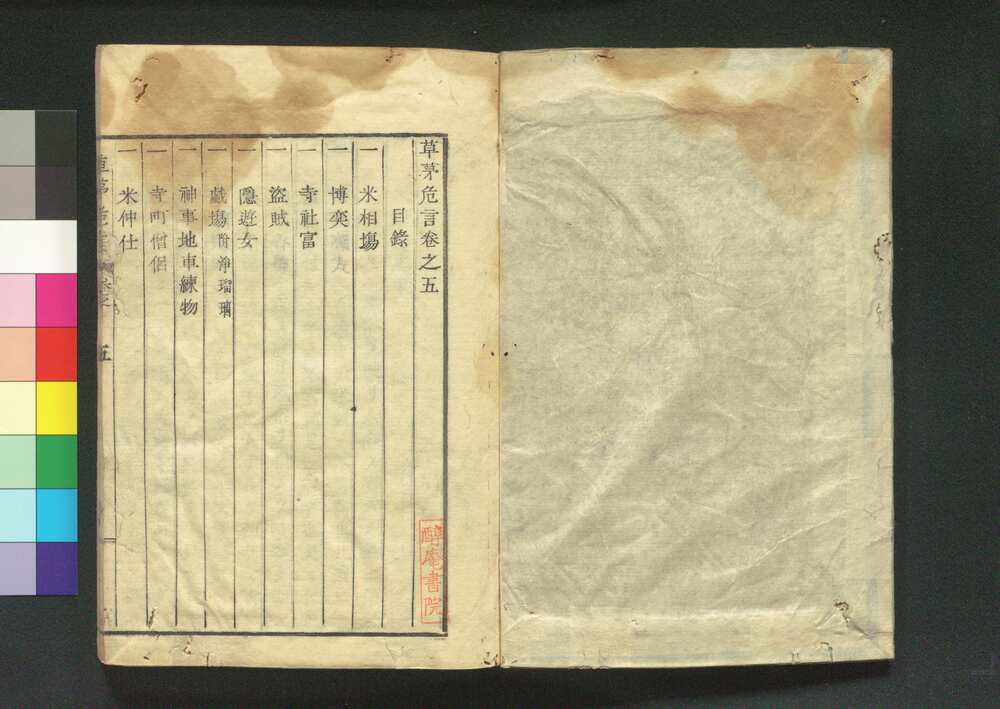 草茅危言卷之五
目錄
一 米相塲
一 博奕
一 寺社富
一 盜賊
一 隱遊女
一 戯塲附淨瑠璃
一 神車地車練物
一 寺町僧侶
一 米仲仕
五
醇庵書院